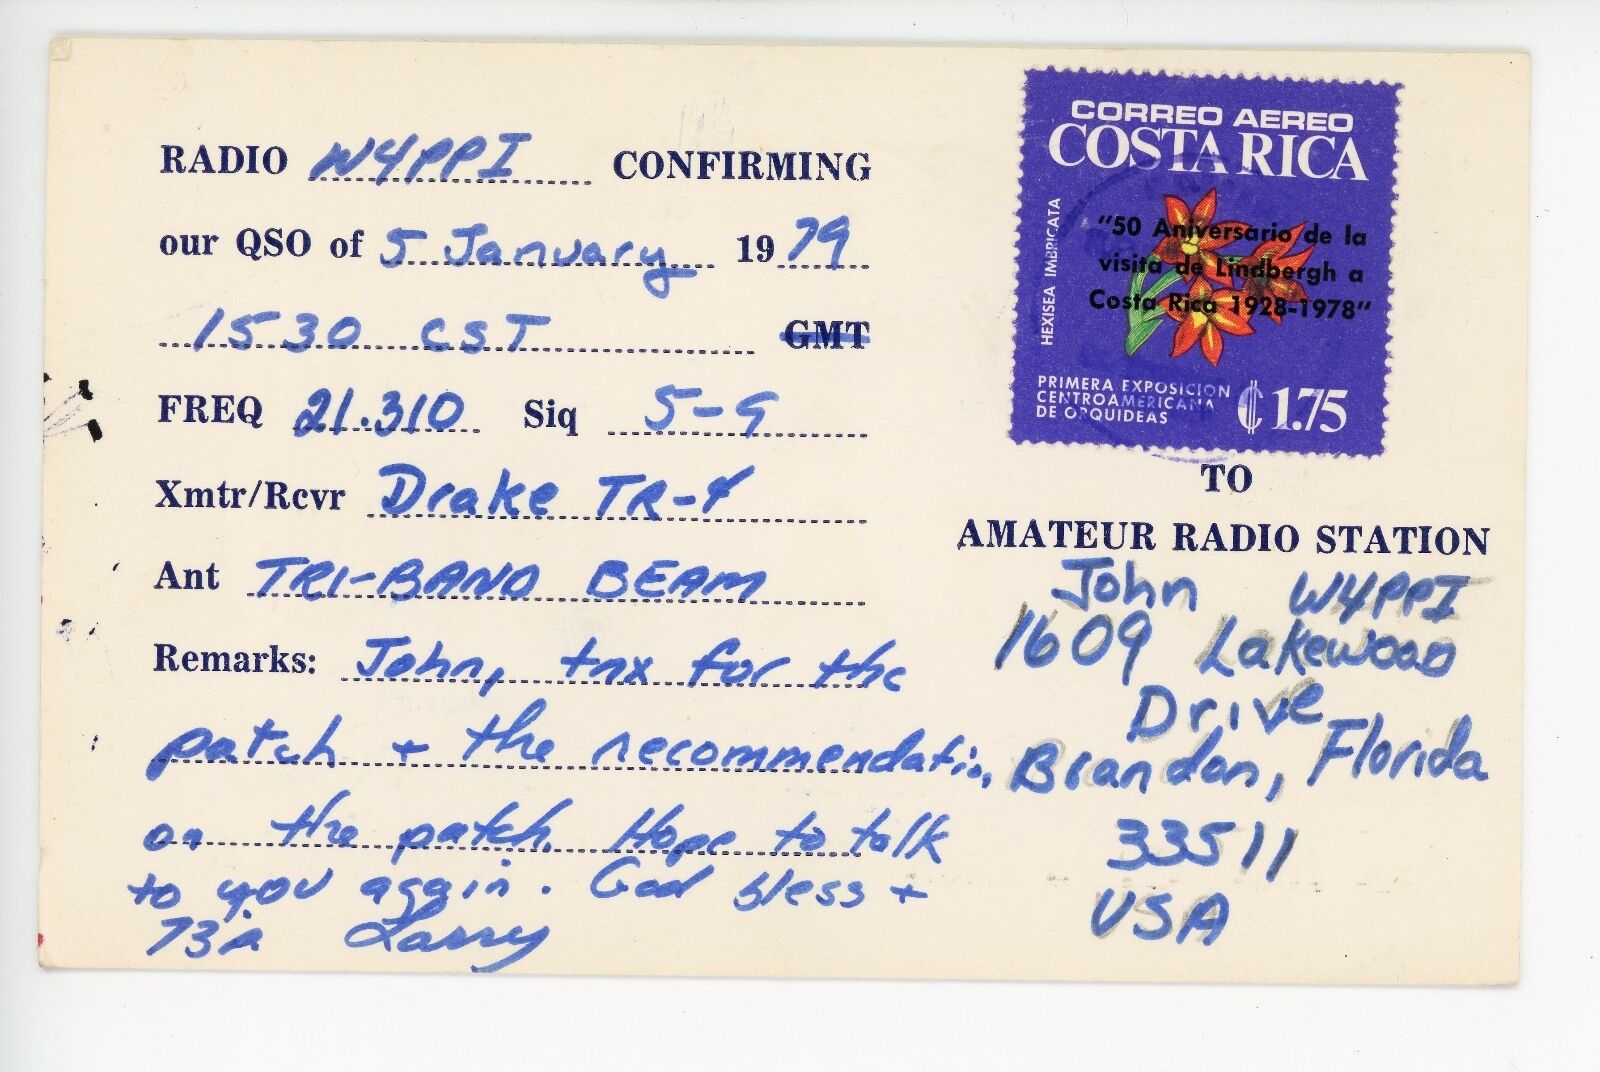 RADIO W4PPI CONFIRMING
our QSO of 5 January 1979
1530 CST GMT
FREQ 21.310 Siq 5-9
Xmtr/Rcvr Drake TR-4
Ant TRI-BAND BEAM
Remarks: John, tnx for the
patch + the recommendatio,
on the patch. Hope to talk
to you again. God bless +
73's Larry
CORREO AEREO
COSTA RICA
HEXISEA IMBRICATA
"50 Aniversario de la
visita de Lindbergh a
Costa Rica 1928-1978"
PRIMERA EXPOSICION
CENTROAMERICANA
DE ORQUIDEAS
₡1.75
TO
AMATEUR RADIO STATION
John W4PPI
1609 Lakewood
Drive
Brandon, Florida
33511
USA